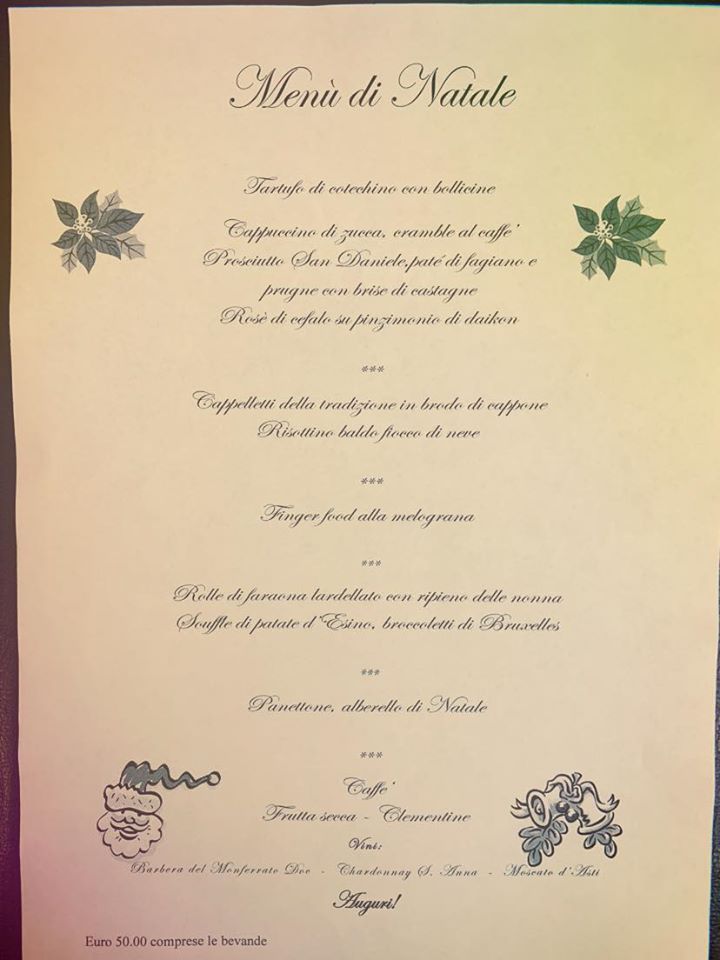 Menù di Natale
Tartufo di cotechino con bollicine
Cappuccino di zucca, cramble al caffe'
Prosciutto San Daniele,paté di fagiano e
prugne con brise di castagne
Rosè di cefalo su pinzimonio di daikon
***
Cappelletti della tradizione in brodo di cappone
Risottino baldo fiocco di neve
***
Finger food alla melograna
***
Rolle di faraona lardellato con ripieno delle nonna
Souffle di patate d'Esino, broccoletti di Bruxelles
***
Panettone, alberello di Natale
***
Caffe'
Frutta secca - Clementine
Vini:
Barbera del Monferrato Doc - Chardonnay S. Anna - Moscato d'Asti
Auguri!
Euro 50.00 comprese le bevande